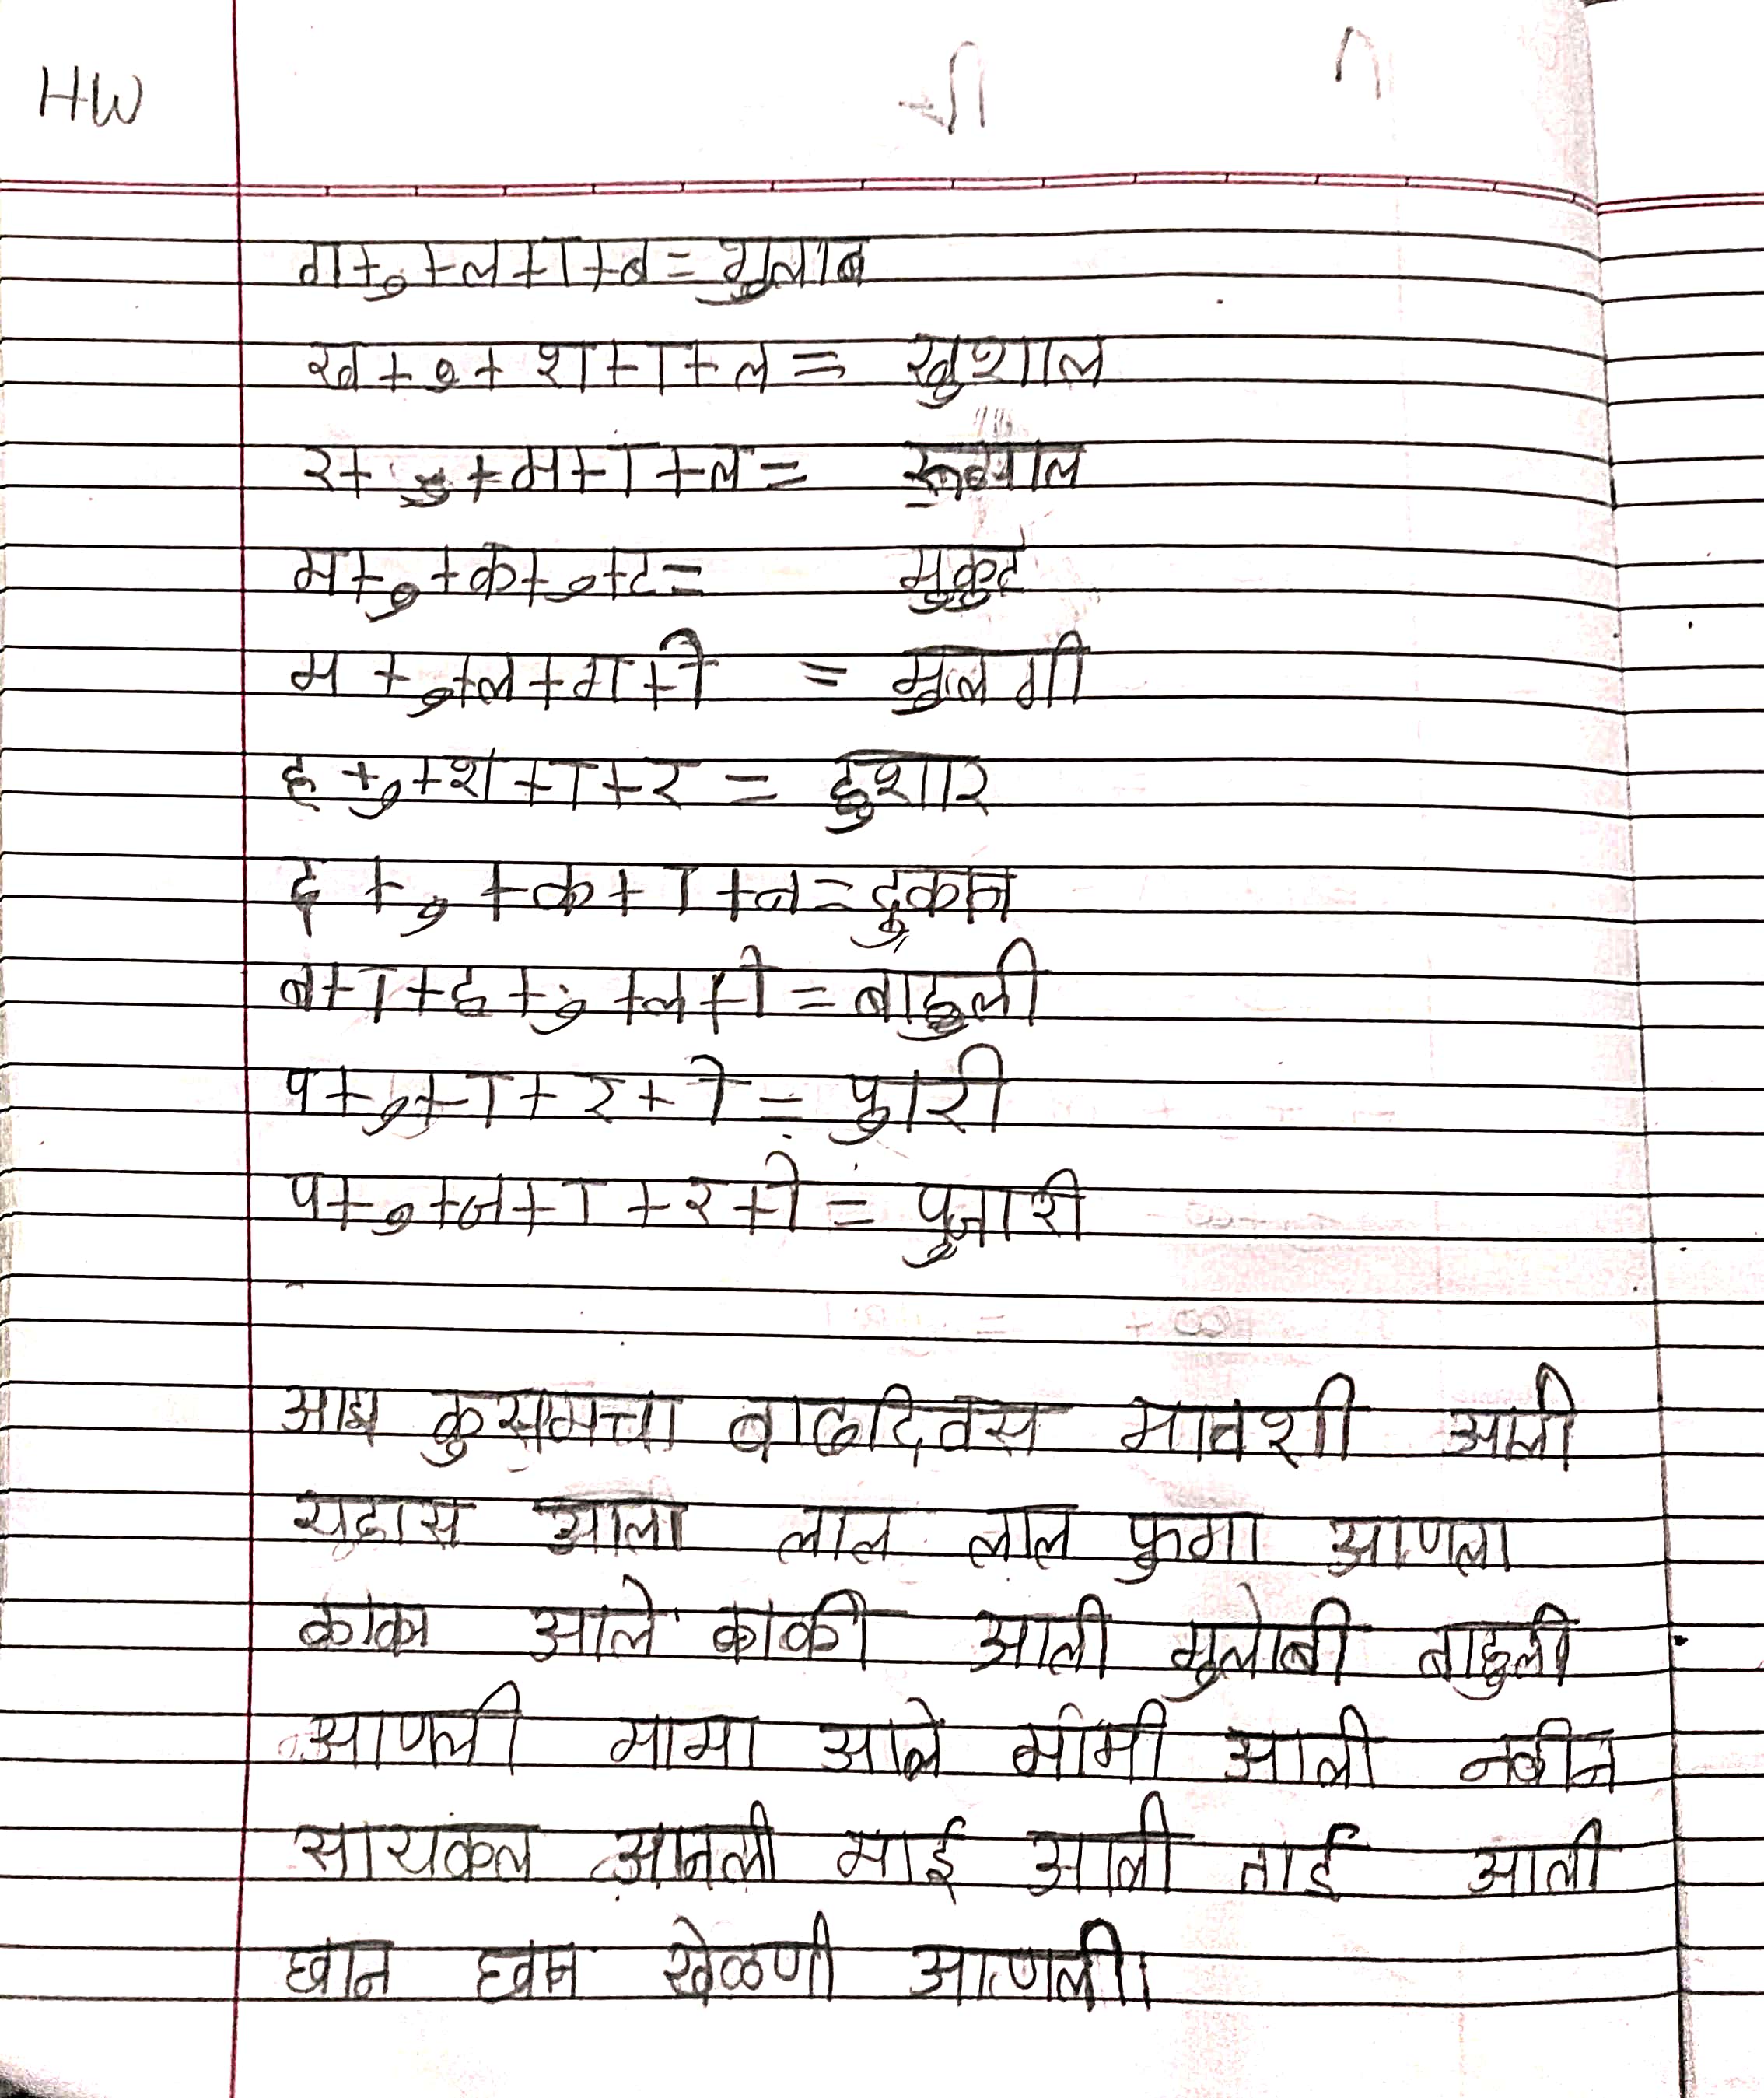 HW
ग+ु+ल+ा+ब=गुलाब
ख+ु+श+ा+ल= खुशाल
र+ ु+म+ा+ल= रूमाल
म+ु+क+ु+ट= मुकुट
म+ु+ल+ग+ी = मुलगी
ह+ु+श+ा+र = हुशार
द+ु+क+ा+न=दुकान
ब+ा+ह+ु+ल+ी=बाहुली
प+ु+ा+र+ी=पुारी
प+ु+ज+ा+र+ी=पुजारी
कुसुमचा वाढदिवस मावशी आली
आला लाल लाल फुगा आणला
काका आले काकी आली गुलाबी बाहुली
आणली मामा आले मामी आली नवीन
सायकल आनली माई आली ताई आली
छान छान खेळणी आणली।